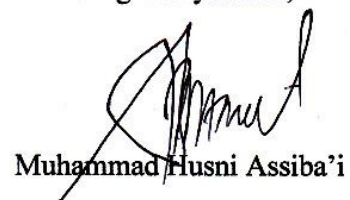 Muhammad Husni Assiba'i